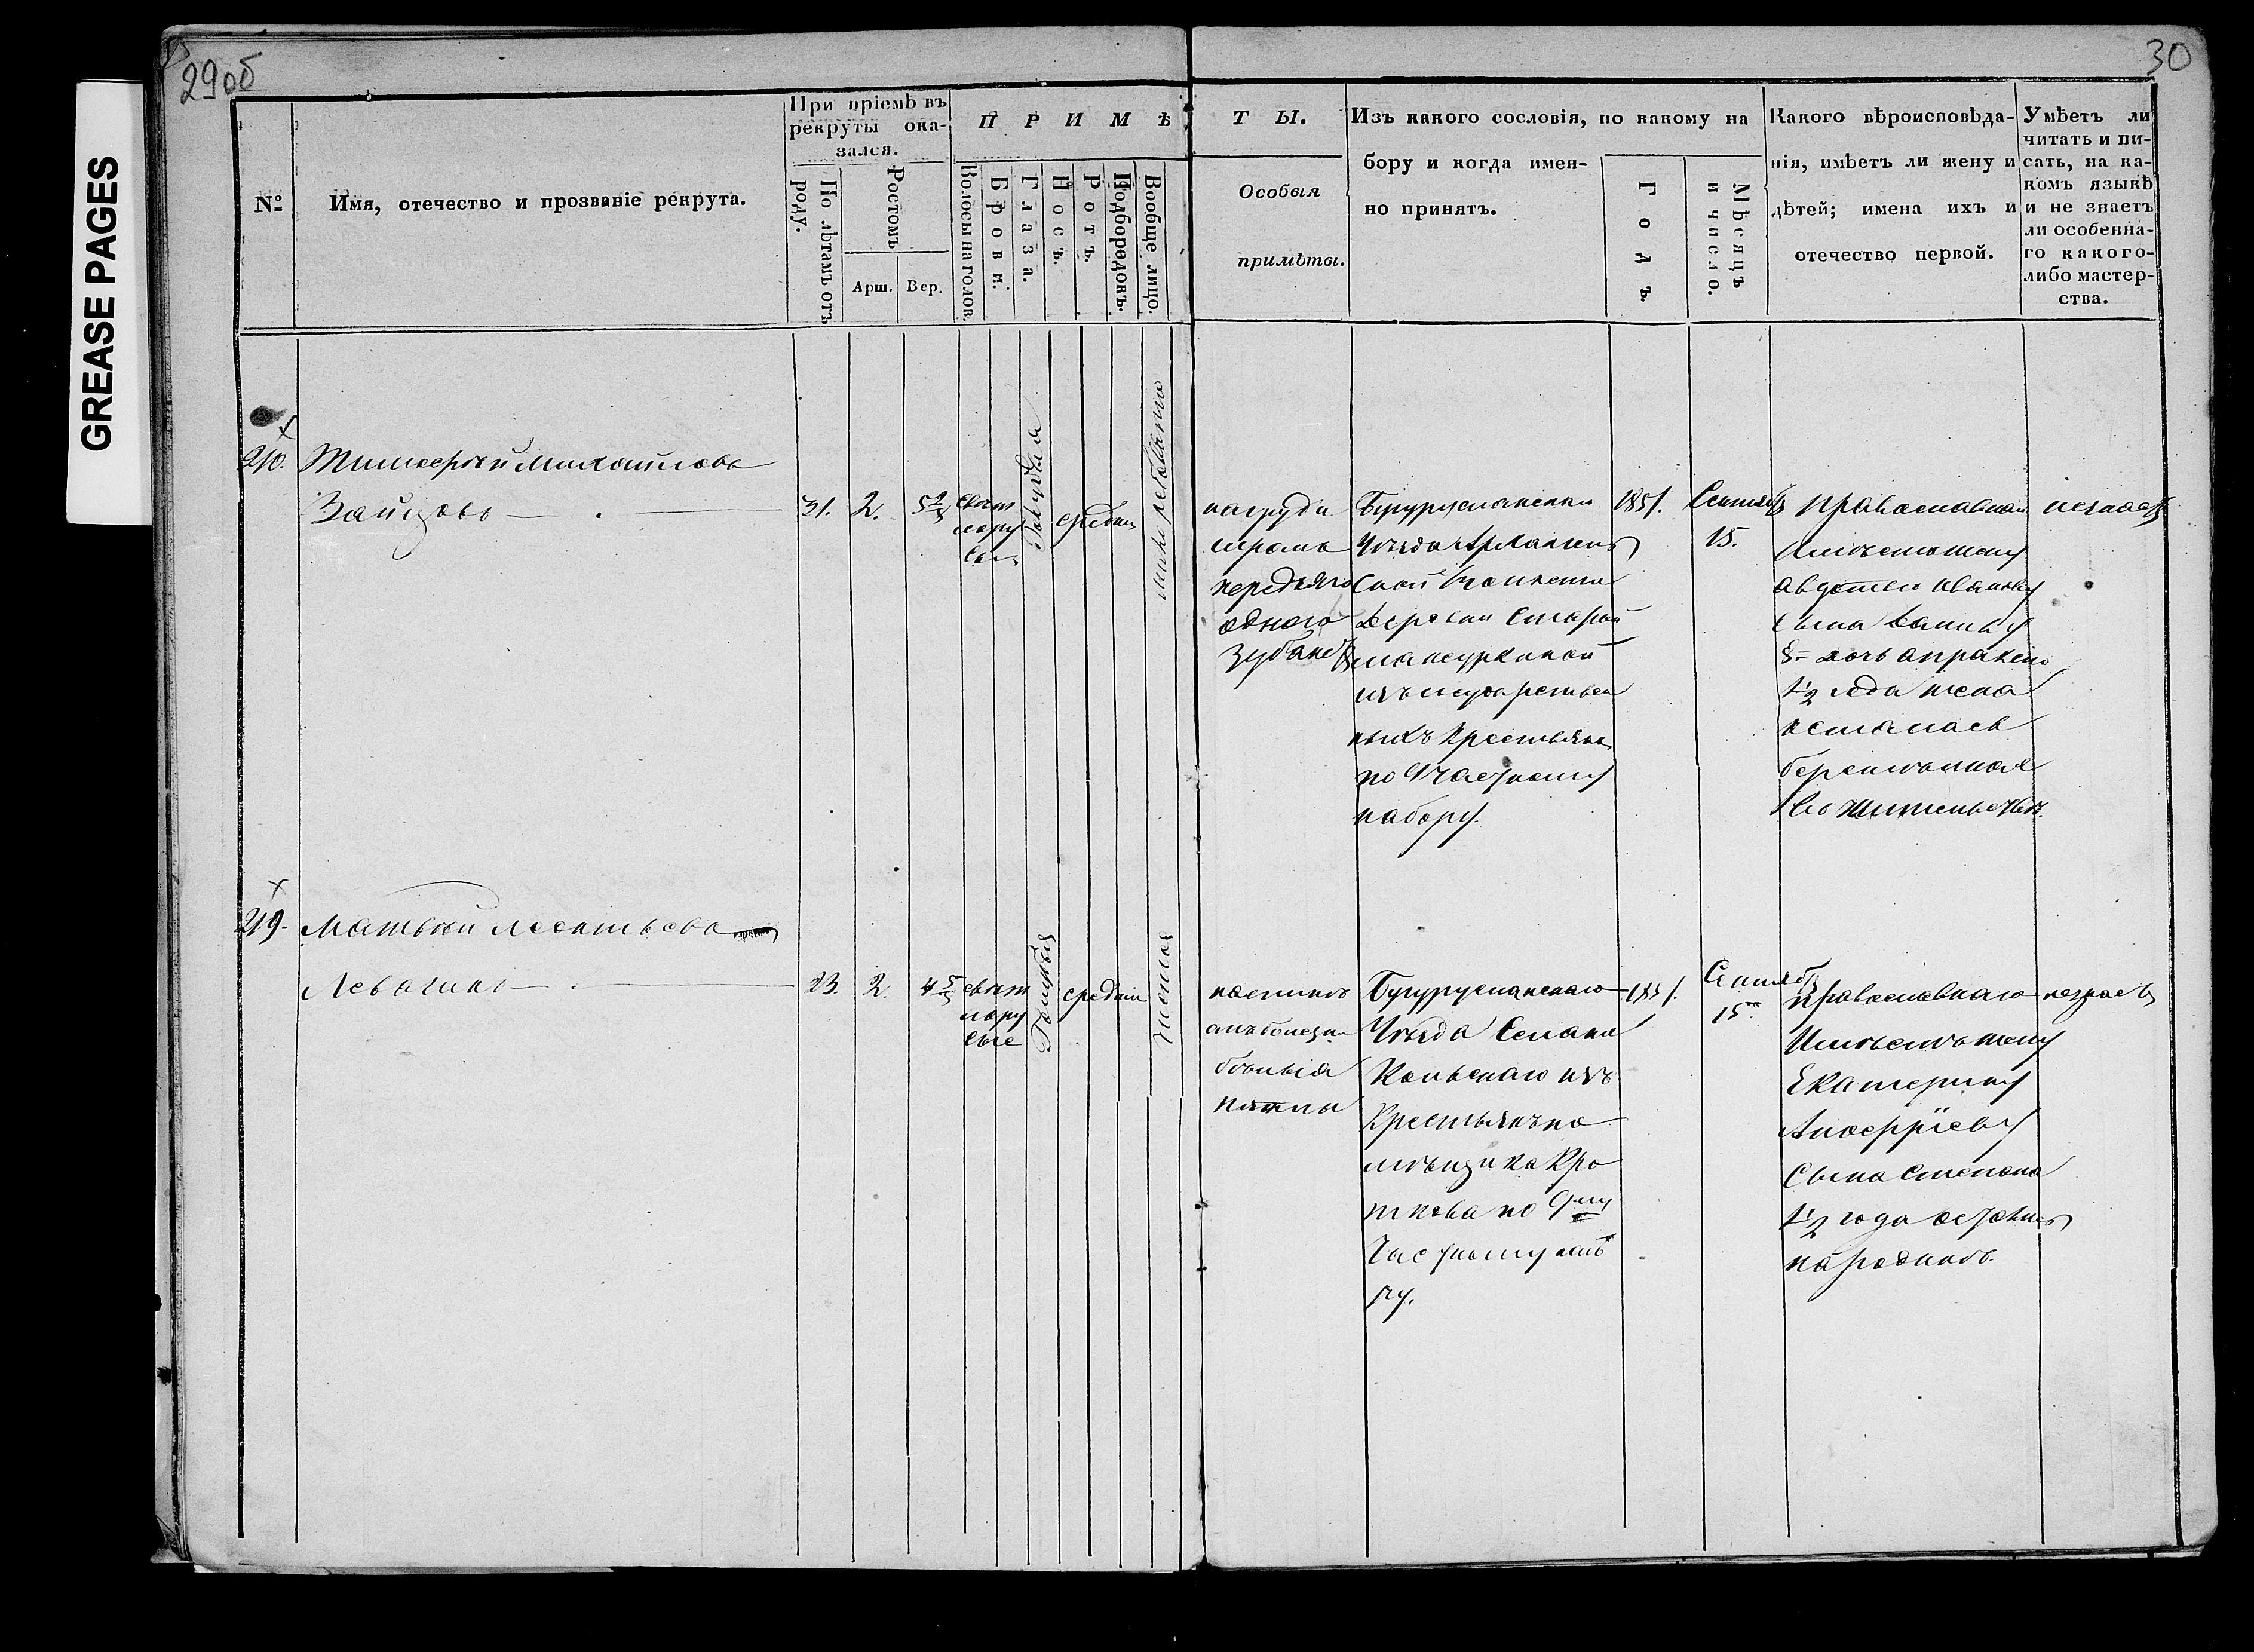 GREASE PAGES
29об
30
№
Имя, отечество и прозваніе рекрута.
При пріемѣ въ
рекруты ока-
зался.
По лѣтамъ отъ
роду.
Ростомъ
Арш.
Вер.
П Р И М Ѣ
Волосы на голов.
Брови.
Глаза.
Носъ.
Ротъ.
Подбородокъ.
Вообще лицо.
Т Ы.
Особыя
примѣты.
Изъ какого сословія, по какому на
бору и когда имен-
но принятъ.
Годъ.
Мѣсяцъ
и число.
Какого вѣроисповѣда-
нія, имѣетъ ли жену и
дѣтей; имена ихъ и
отечество первой.
Умѣетъ ли
читать и пи-
сать, на ка-
комъ языкѣ
и не знаетъ
ли особенна-
го какого-
либо мастер-
ства.
Тимоѳѣй Михайловъ
Зайцовъ
31.
2.
свѣт
лору
сыя
Голубыя
средній
на груди
шрамъ
передняго
одного
зуба нѣтъ
Бугурусланскаго
Уѣзда Архангель
ской волости
Деревни Старой
мансуркиной
изъ государствен
ныхъ Крестьянъ
по 9 частному
набору.
1851.
Сентябр
15.
православнаго
Имѣетъ жену
Авдотью Иванову
сына
дочь
1/2 года жена
осталась
беременная
незнаетъ
Матвѣй Леонтьевъ
Левагинъ
23.
2.
свѣт
лору
сые
Голубыя
средній
чистое
Бугурусланскаго
Уѣзда Села
изъ
Крестьянъ по
мѣщика Кро
ткова по 9му
Частному набо
ру.
1851.
Сентябр
15
православнаго
Имѣетъ жену
Екатерину
Сына Степана
1/2 года
незнаетъ